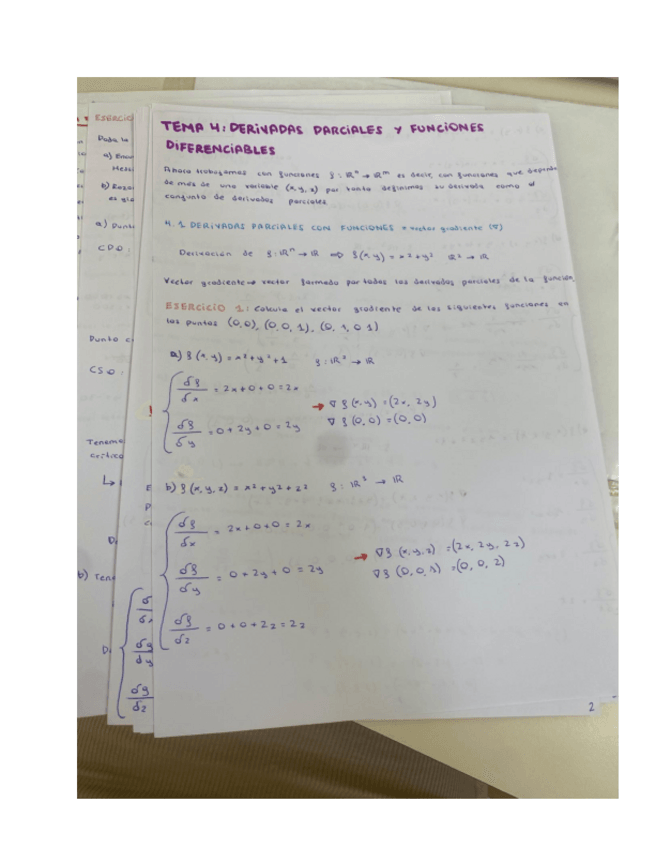 TEMA 4: DERIVADAS PARCIALES Y FUNCIONES
DIFERENCIABLES
Ahora trabajamos con funciones f: ℝⁿ → ℝᵐ es decir, con funciones que depende
de más de una variable (x, y, z) por tanto definimos su derivada como el
conjunto de derivadas parciales.
4.1 DERIVADAS PARCIALES CON FUNCIONES = vector gradiente (∇)
Derivación de f: ℝⁿ → ℝ ⇒ f(x, y) = x² + y² ℝ² → ℝ
Vector gradiente → vector formado por todas las derivadas parciales de la función.
EJERCICIO 1: Calcula el vector gradiente de las siguientes funciones en
los puntos (0,0), (0,0,1), (0,1,0,1)
a) f(x, y) = x² + y² + 1 f: ℝ² → ℝ
δf/δx = 2x + 0 + 0 = 2x
→ ∇f(x, y) = (2x, 2y)
δf/δy = 0 + 2y + 0 = 2y
∇f(0,0) = (0,0)
b) f(x, y, z) = x² + y² + z² f: ℝ³ → ℝ
δf/δx = 2x + 0 + 0 = 2x
→ ∇f(x, y, z) = (2x, 2y, 2z)
δf/δy = 0 + 2y + 0 = 2y
∇f(0,0,1) = (0,0,2)
δf/δz = 0 + 0 + 2z = 2z
2
EJERCIC
Dada la
a)
b)
a) Punt
CPO:
Punto c
CSO:
Tenemo
crítico
b) Tene